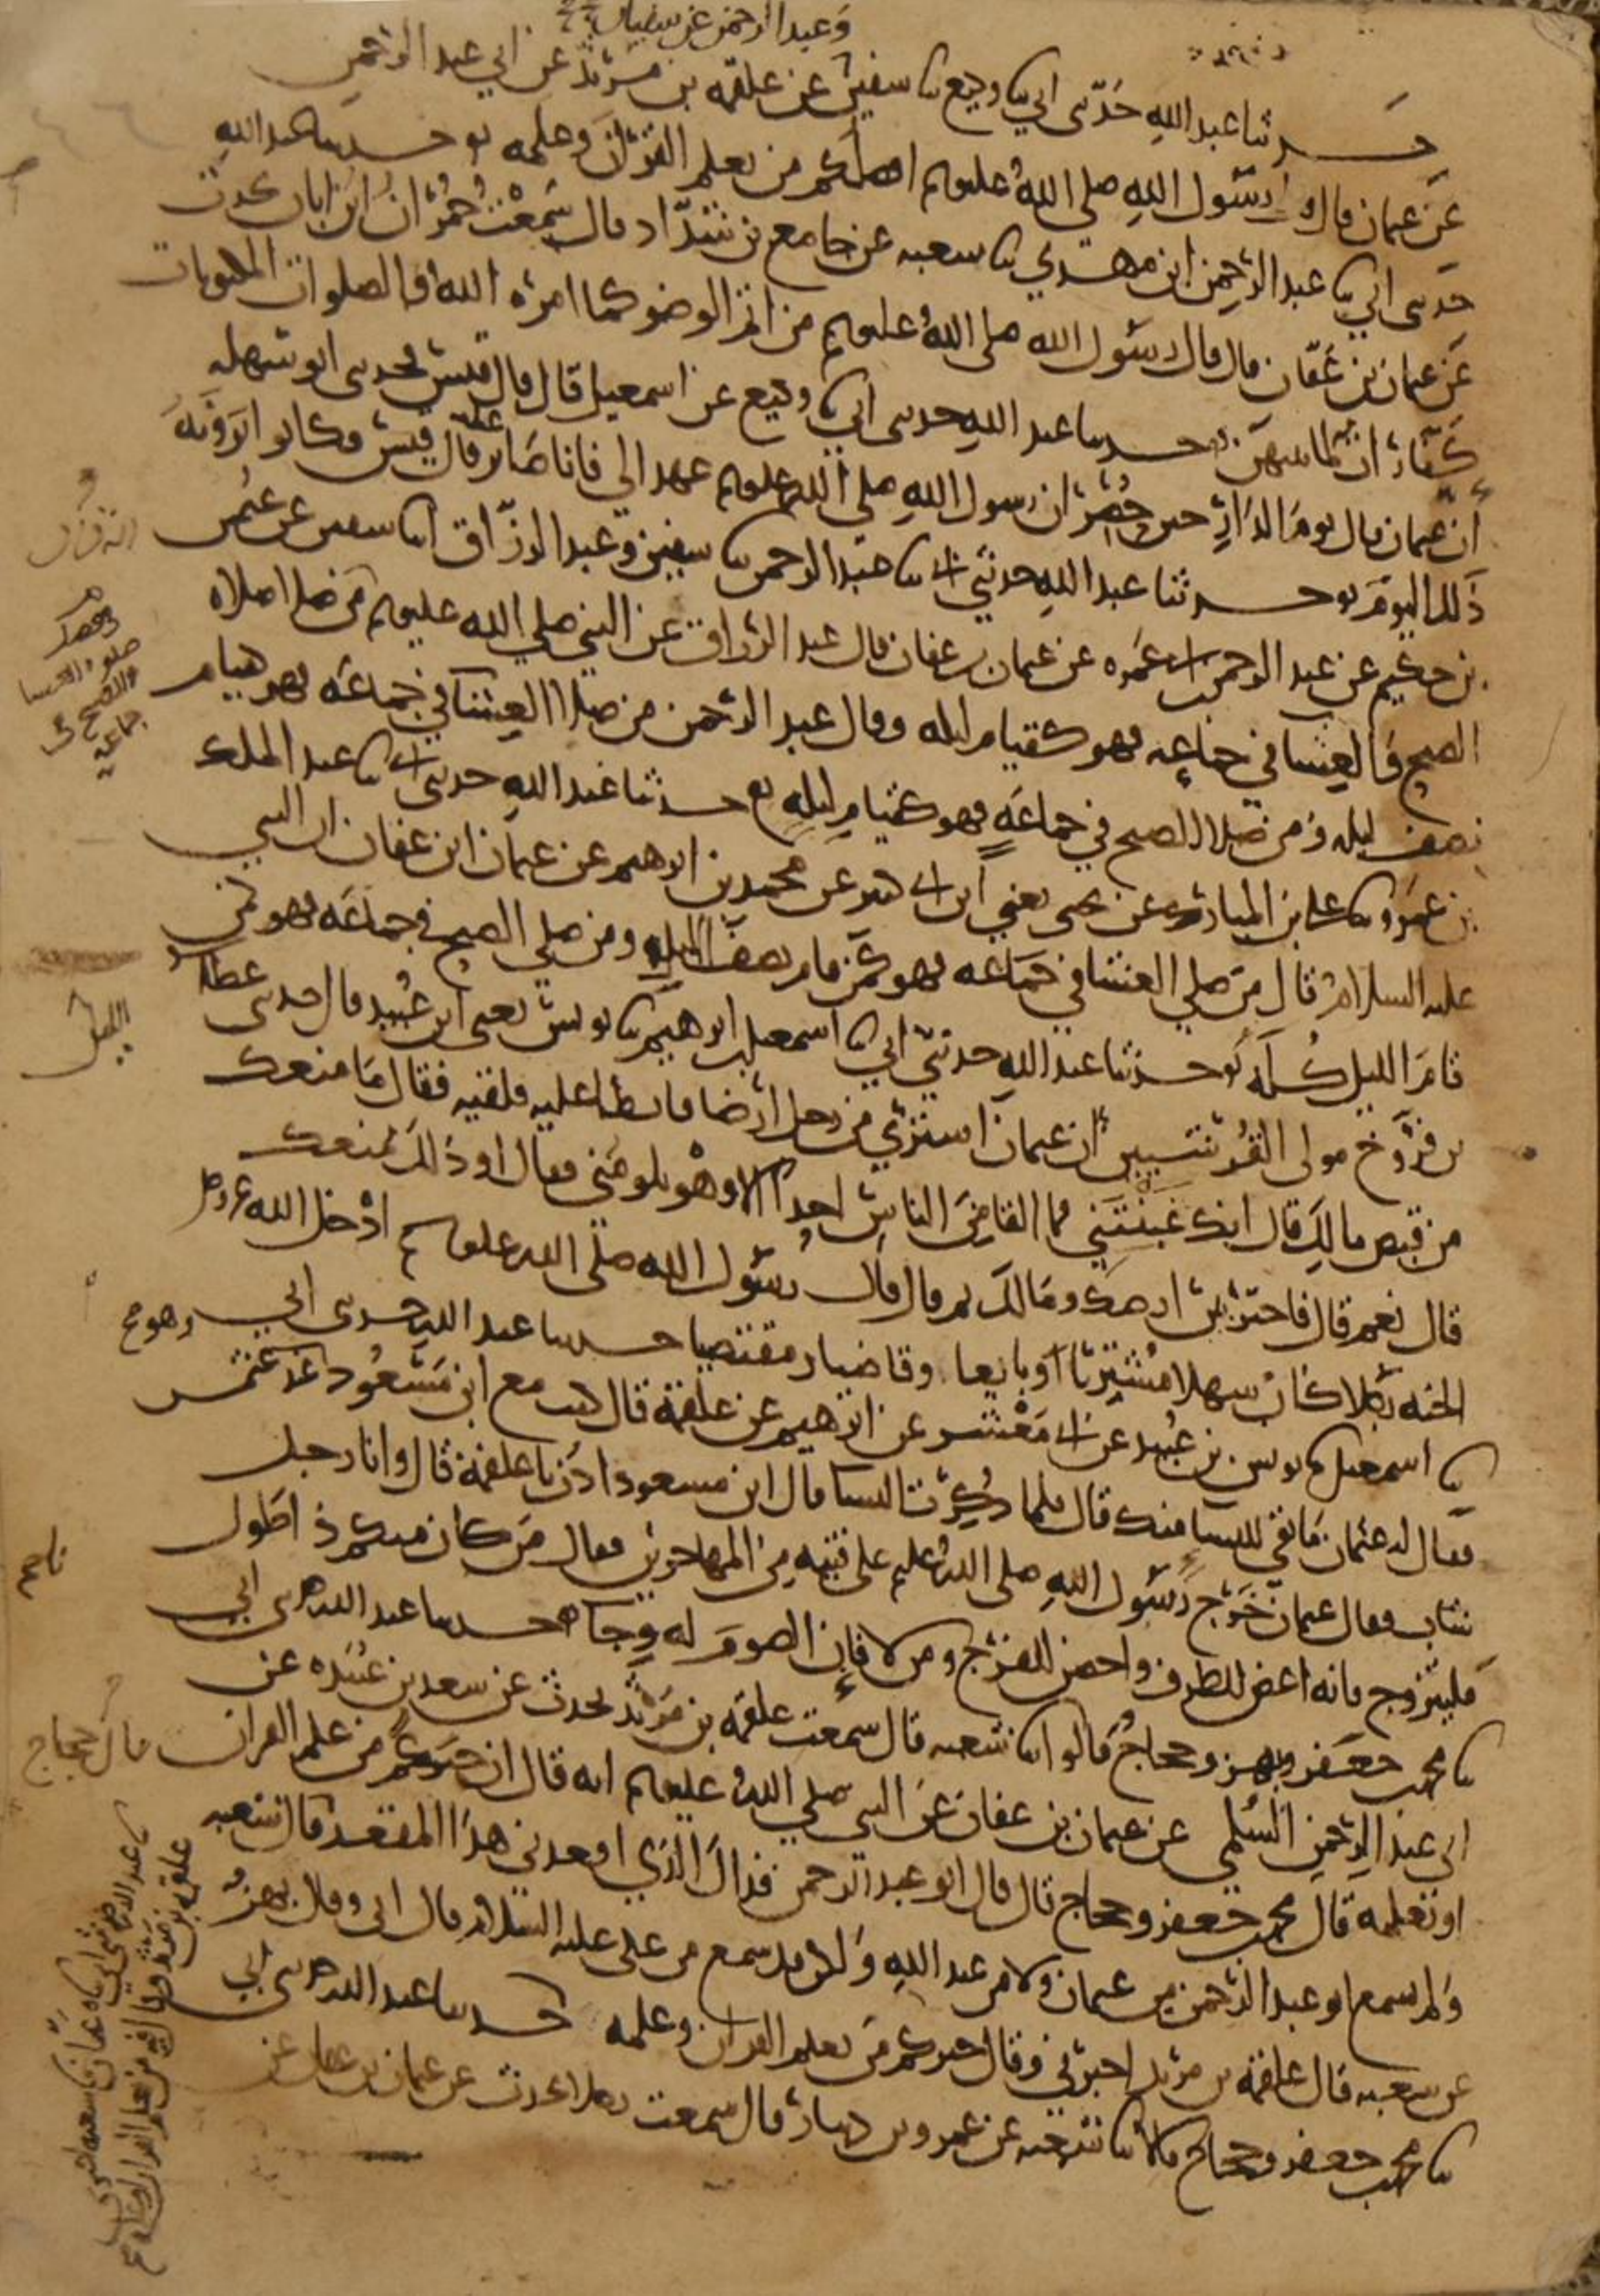 وعبد الرحمن عن سفيان
حدثنا عبد الله حدثني ابي ثنا وكيع ثنا سفين عن علقمه بن مرثد عن ابي عبد الرحمن
عن عثمان قال قال رسول الله صلى الله عليه وسلم افضلكم من تعلم القران وعلمه حدثنا عبد الله
حدثني ابي ثنا عبد الرحمن ابن مهدي ثنا شعبه عن جامع بن شداد قال سمعت حمران ابن ابان يحدث
عن عثمان بن عفان قال قال رسول الله صلى الله عليه وسلم من اتم الوضو كما امره الله فالصلوات المكتوبات
كفارات لما بينهن حدثنا عبد الله حدثني ابي ثنا وكيع عن اسمعيل قال قال قيس فحدثني ابو سهله
ان عثمان قال يوم الدار حين حصر ان رسول الله صلى الله عليه وسلم عهد الي فانا صابر عليه قال قيس فكانوا يرونه
ذلك اليوم حدثنا عبد الله حدثني ابي ثنا عبد الرحمن ثنا سفين وعبد الرزاق انا سفين عن عثمن
بن حكيم عن عبد الرحمن بن ابي عمره عن عثمان بن عفان قال عبد الرزاق عن النبي صلى الله عليه وسلم من صلا صلاه
الصبح والعشا في جماعه فهو كقيام ليله وقال عبد الرحمن من صلا العشا في جماعه فهو كقيام
نصف ليله ومن صلا الصبح في جماعه فهو كقيام ليله حدثنا عبد الله حدثني ابي ثنا عبد الملك
بن عمرو ثنا علي بن المبارك عن يحيى يعني ابن ابي كثير عن محمد بن ابرهيم عن عثمان ابن عفان ان النبي
عليه السلام قال من صلى العشا في جماعه فهو كمن قام نصف الليل ومن صلى الصبح في جماعه فهو كمن
قام الليل كله حدثنا عبد الله حدثني ابي ثنا اسمعيل بن ابرهيم ثنا يونس يعني ابن عبيد قال حدثني عطا
بن فروخ مولى القرشيين ان عثمان اشترى من رجل ارضا فابطا عليه فلقيه فقال ما منعك
من قبض مالك قال انك غبنتني فما القا من الناس احدا الا وهو يلومني فقال او ذلك يمنعك
قال نعم قال فاختر بين ارضك ومالك ثم قال قال رسول الله صلى الله عليه وسلم ادخل الله عز وجل
الجنه رجلا كان سهلا مشتريا او بايعا وقاضيا ومقتضيا حدثنا عبد الله حدثني ابي
ثنا اسمعيل ثنا يونس بن عبيد عن ابي معشر عن ابرهيم عن علقمة قال كنت مع ابن مسعود وهو عند عثمن
فقال له عثمان ما بقي للنسا منك قال فلما ذكرت النسا قال ابن مسعود ادن يا علقمة قال وانا رجل
شاب فقال عثمان خرج رسول الله صلى الله عليه وسلم على فتيه من المهاجرين فقال من كان منكم ذا طول
فليتزوج فانه اغض للطرف واحصن للفرج ومن لا فان الصوم له وجا حدثنا عبد الله حدثني ابي
ثنا محمد بن جعفر وبهز وحجاج قالوا ثنا شعبه قال سمعت علقمه بن مرثد يحدث عن سعد بن عبيده عن
ابي عبد الرحمن السلمي عن عثمان بن عفان عن النبي صلى الله عليه وسلم انه قال ان خيركم من علم القران
او تعلمه قال محمد بن جعفر وحجاج قال قال ابو عبد الرحمن فذاك الذي اقعدني هذا المقعد قال حجاج قال شعبه
ولم يسمع ابو عبد الرحمن من عثمان ولا من عبد الله ولكن قد سمع من علي عليه السلام قال ابي وقال بهز
عن شعبه قال علقمة بن مرثد اخبرني وقال خيركم من تعلم القران وعلمه حدثنا عبد الله حدثني ابي
ثنا محمد بن جعفر وحجاج قالا ثنا شعبه عن عمرو بن دينار قال سمعت رجلا يحدث عن عثمان بن عفان عن
صلوه العشا
والصبح في
جماعه
الليل